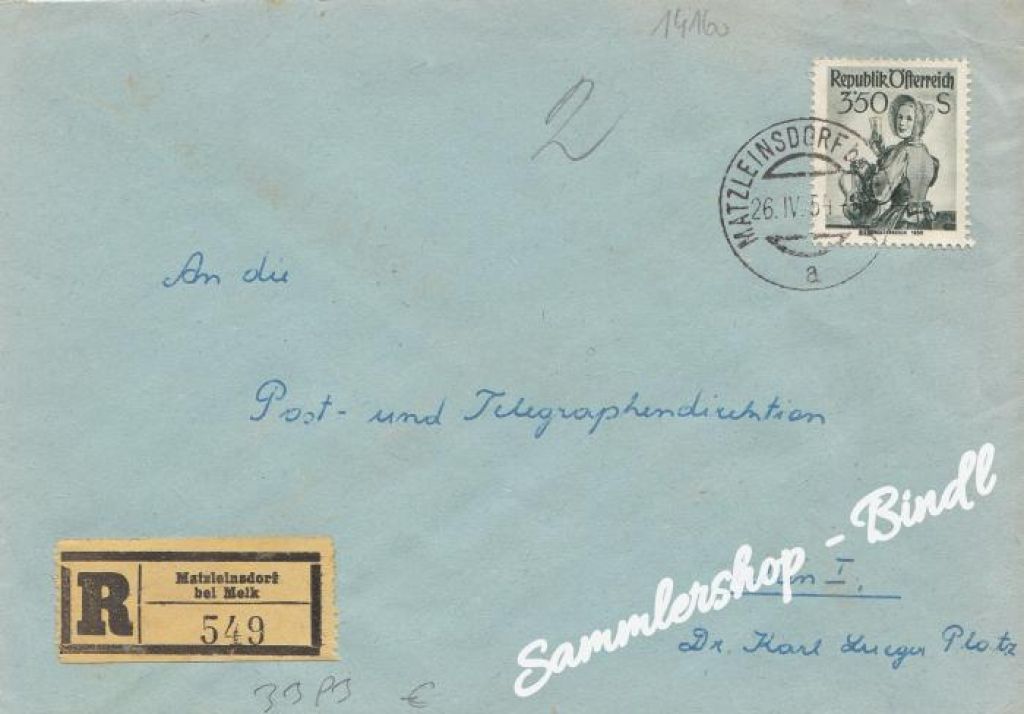 14160
2
Republik Österreich
3·50 S
MATZLEINSDORF
26. IV. 54
a
An die
Post- und Telegraphendirektion
Sammlershop - Bindl
I.
Dr. Karl Lueger Platz
R
Matzleinsdorf
bei Melk
549
€